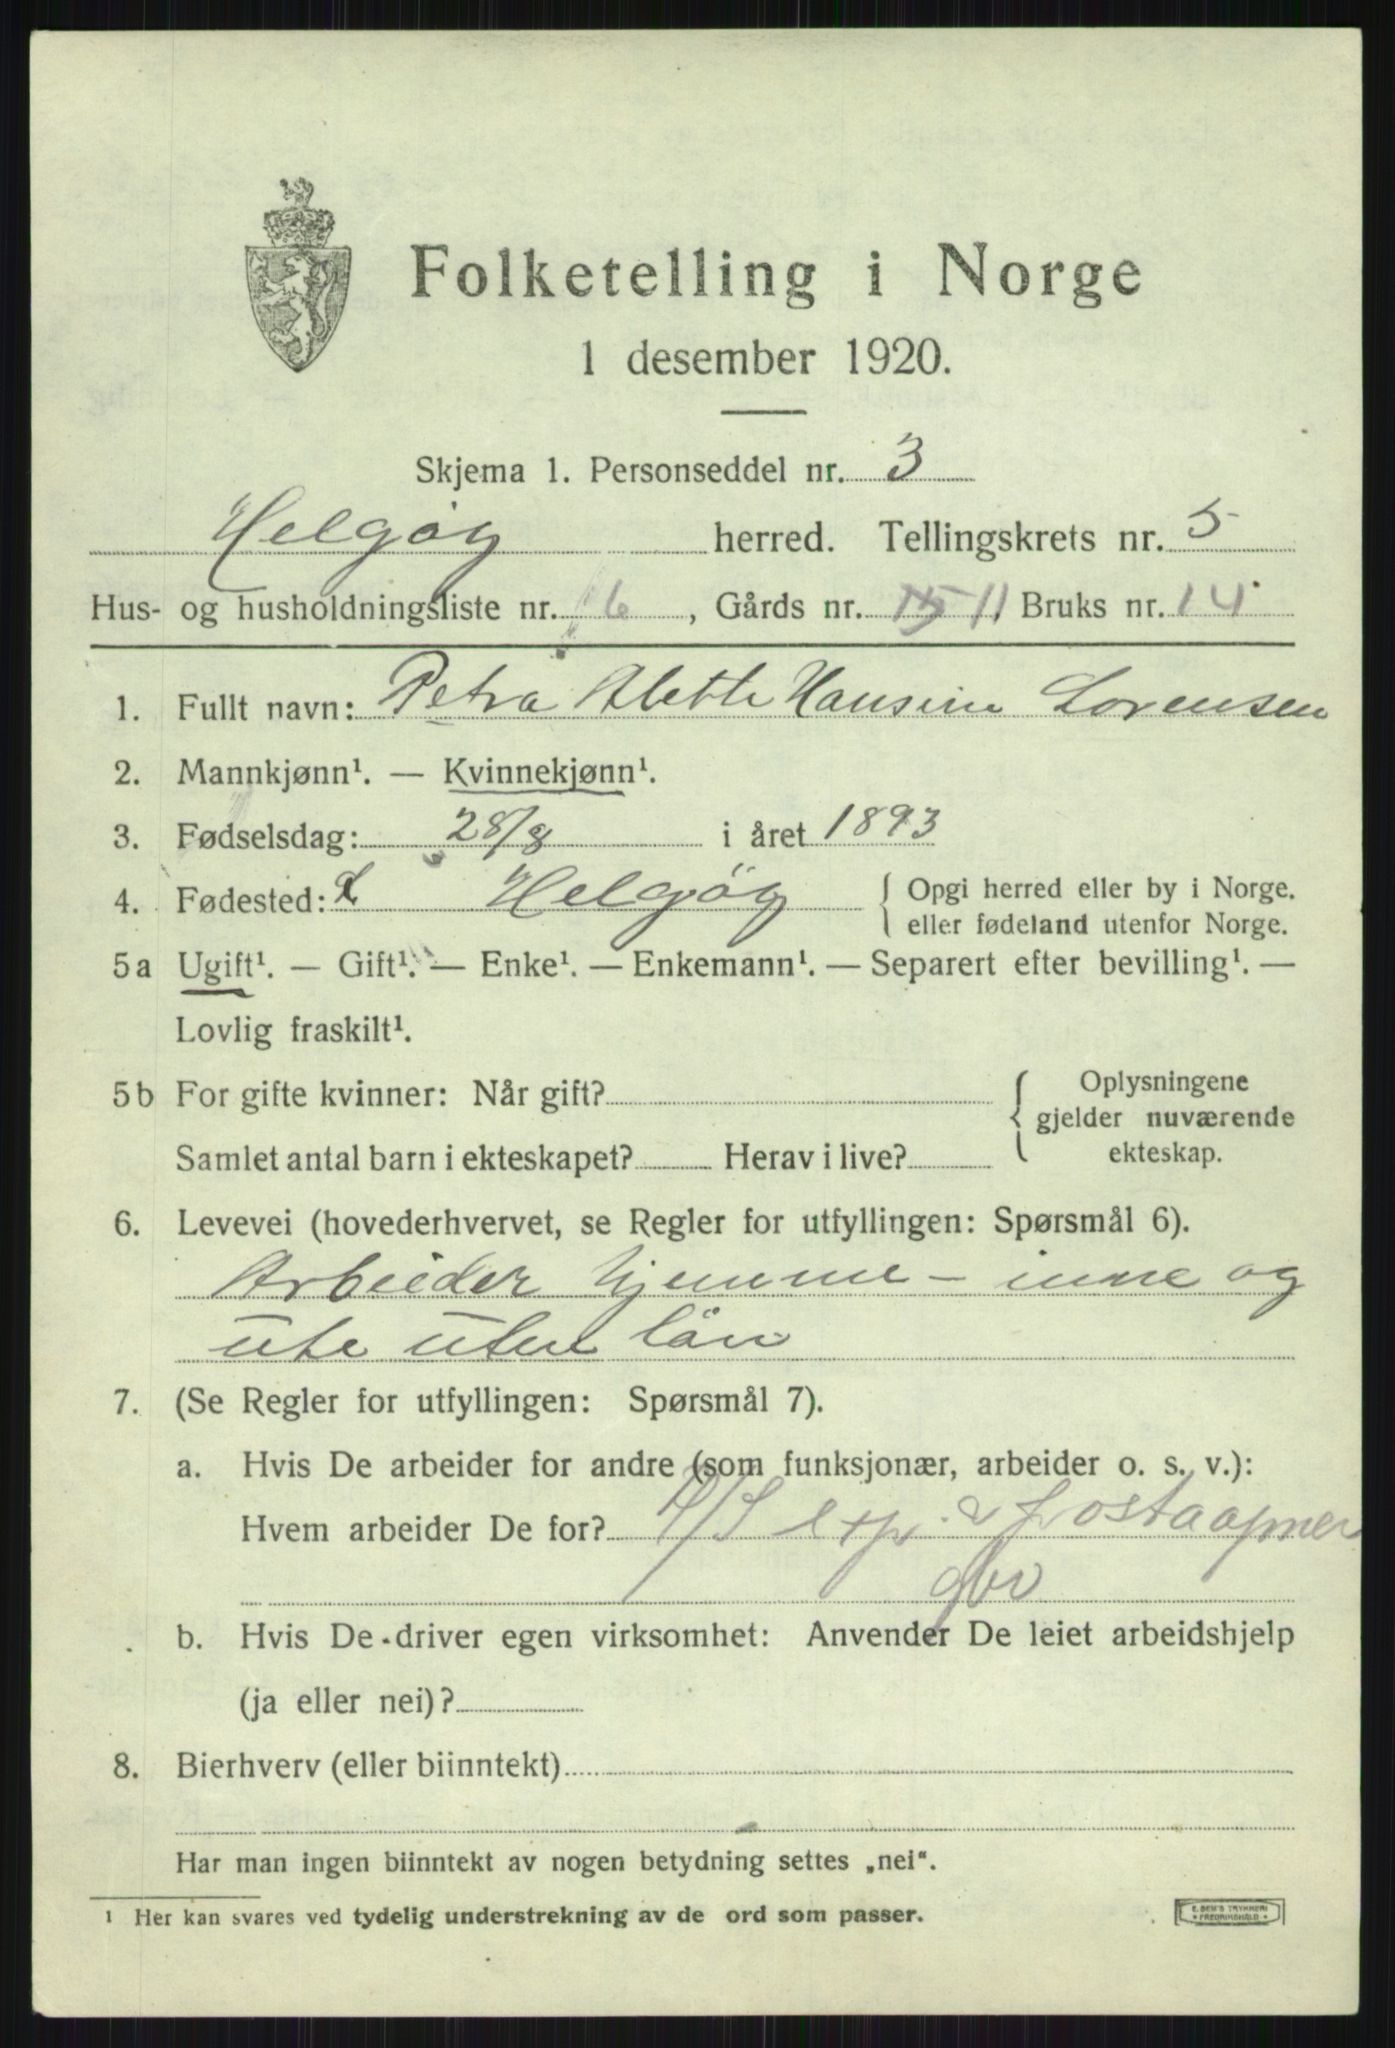 Folketelling i Norge
1 desember 1920.
Skjema 1. Personseddel nr. 3
Helgöy herred. Tellingskrets nr. 5
Hus- og husholdningsliste nr. 6, Gårds nr. 11, Bruks nr. 14
1. Fullt navn: Petra Alette Hansine Lorensen
2. Mannkjønn¹. — Kvinnekjønn¹.
3. Fødselsdag: 28/8 i året 1893
4. Fødested: Helgöy { Opgi herred eller by i Norge.
eller fødeland utenfor Norge.
5a Ugift¹. — Gift¹. — Enke¹. — Enkemann¹. — Separert efter bevilling¹. —
Lovlig fraskilt¹.
5b For gifte kvinner: Når gift? { Oplysningene
gjelder nuværende
Samlet antal barn i ekteskapet? Herav i live? ekteskap.
6. Levevei (hovederhvervet, se Regler for utfyllingen: Spørsmål 6).
Arbeider hjemme – inne og
ute uten lön
7. (Se Regler for utfyllingen: Spørsmål 7).
a. Hvis De arbeider for andre (som funksjonær, arbeider o. s. v.):
Hvem arbeider De for? D/S exp. & postaapner
gbr
b. Hvis De driver egen virksomhet: Anvender De leiet arbeidshjelp
(ja eller nei)?
8. Bierhverv (eller biinntekt)
Har man ingen biinntekt av nogen betydning settes „nei“.
¹ Her kan svares ved tydelig understrekning av de ord som passer.
E. SEM'S TRYKKERI
FREDRIKSHALD